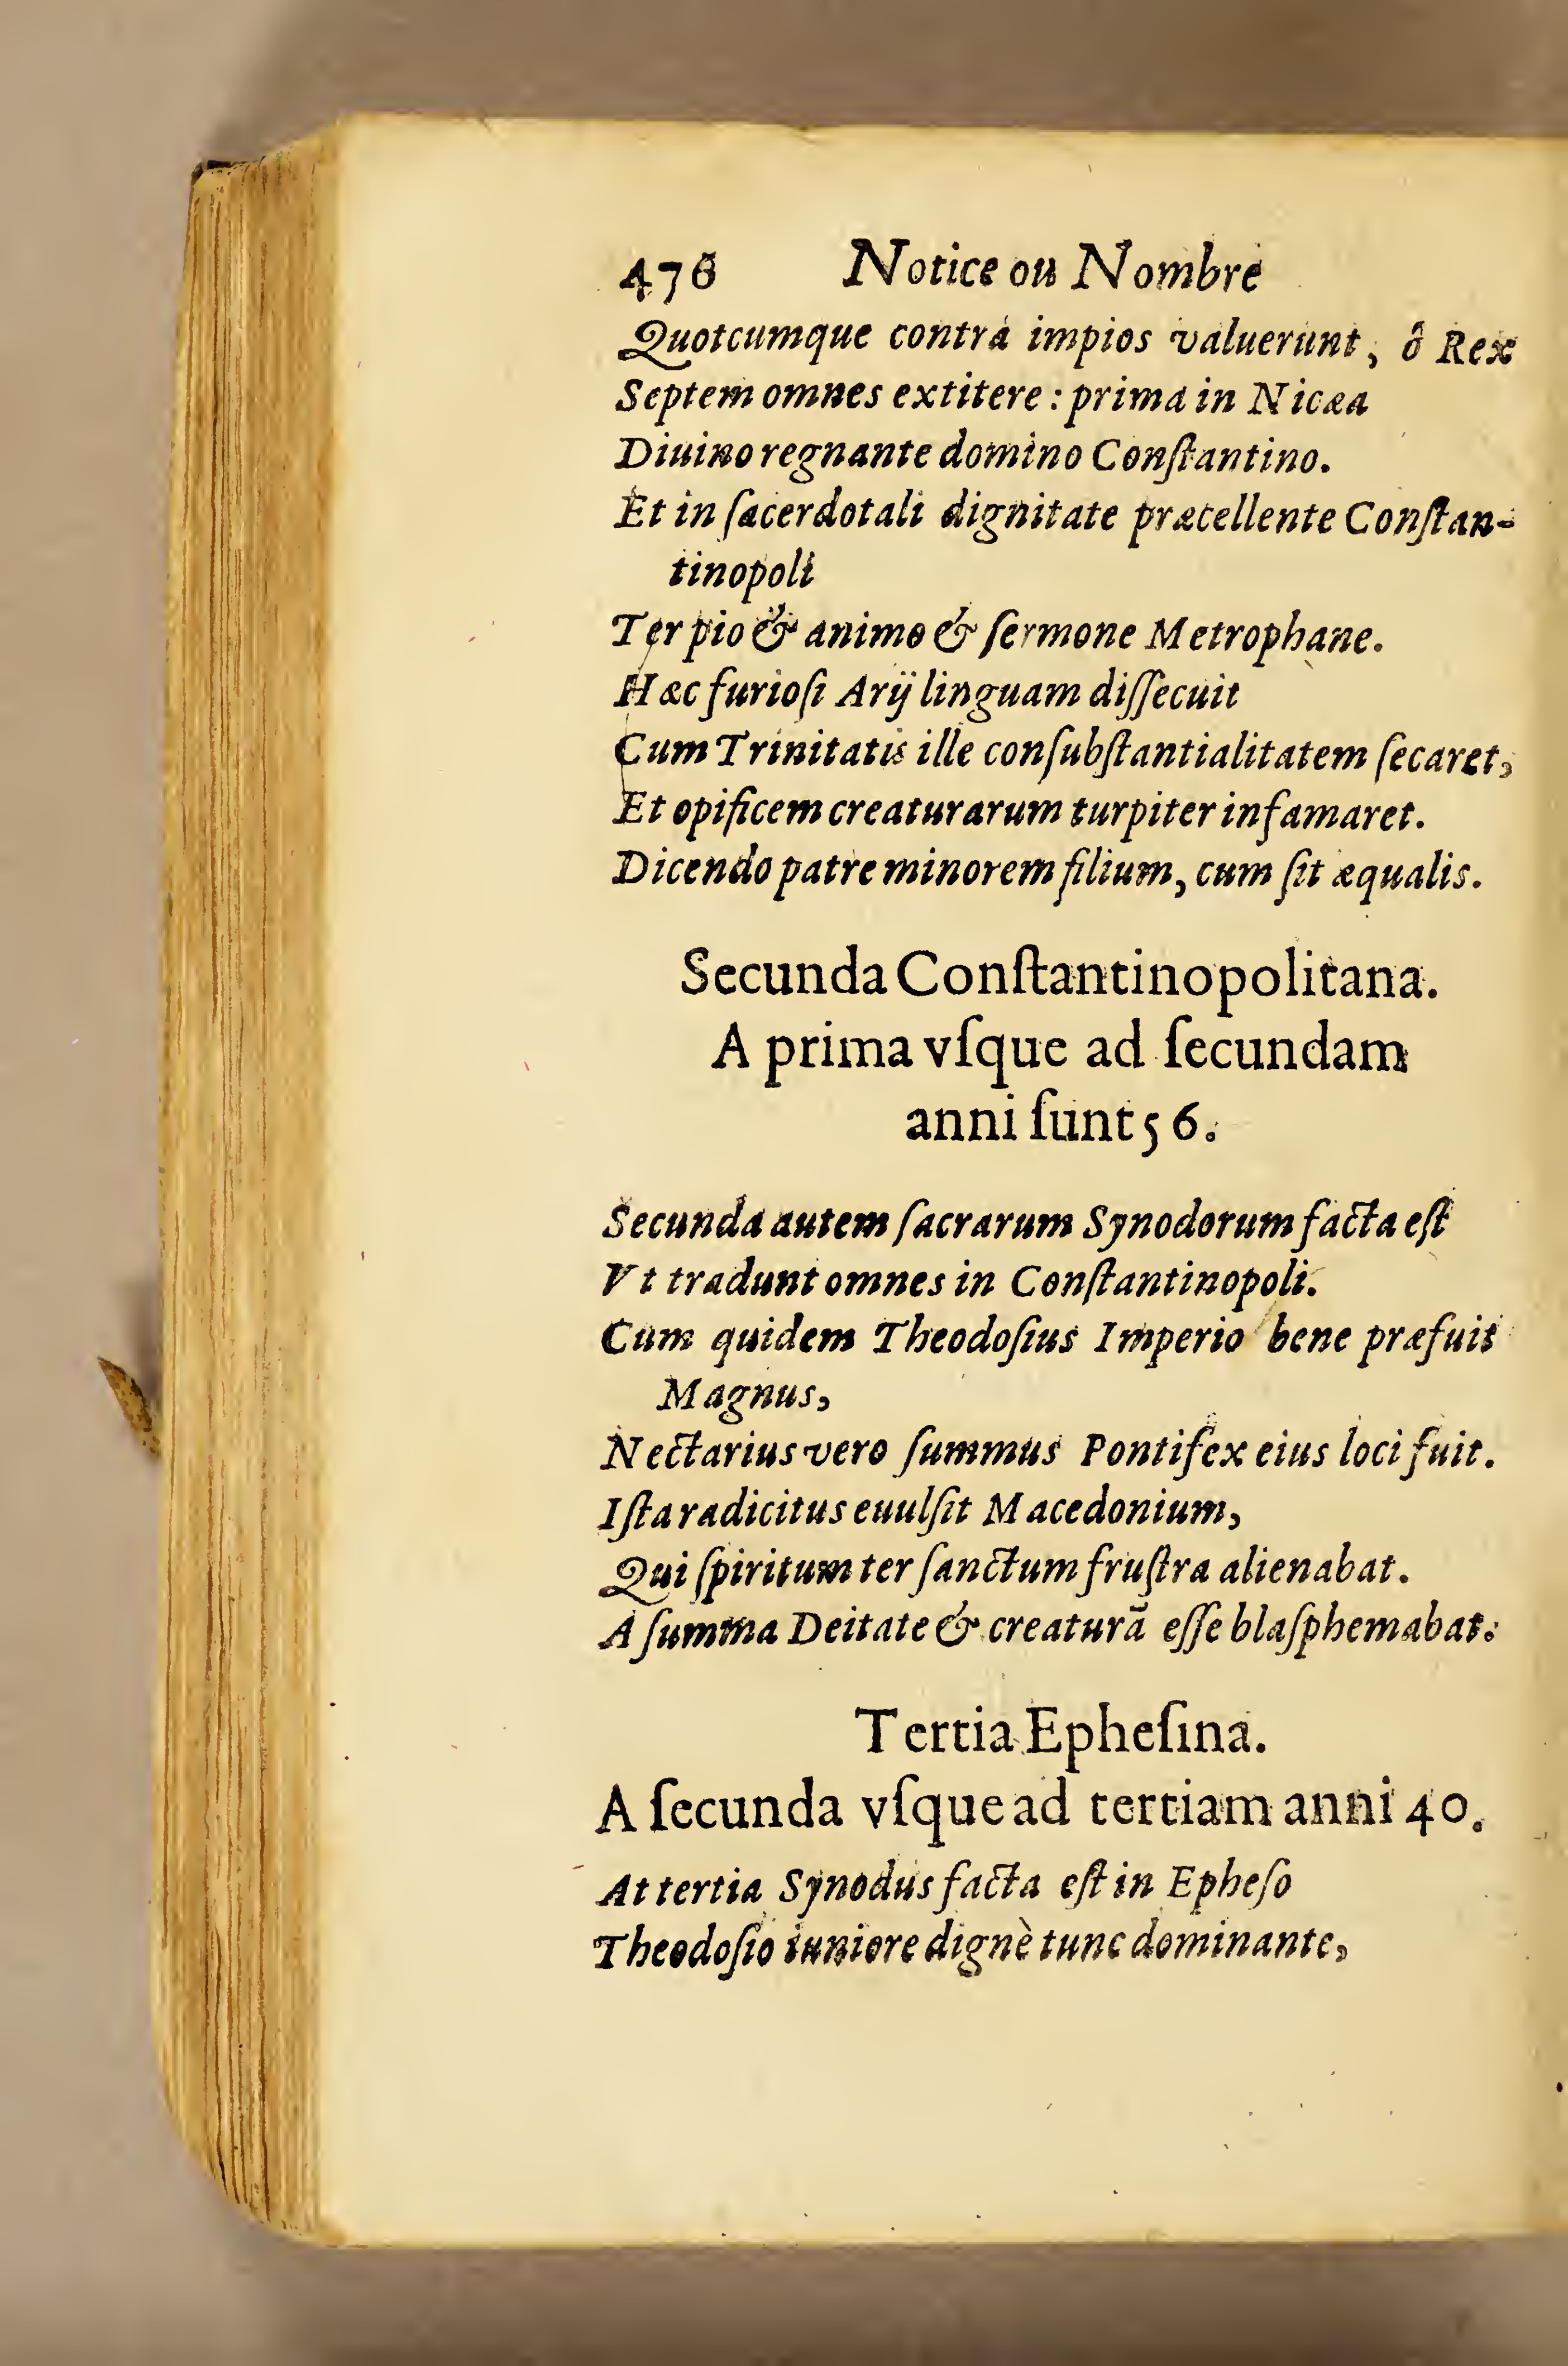 476 Notice ou Nombre
Quotcumque contrà impios valuerunt, ô Rex
Septem omnes extitere : prima in Nicæa
Diuino regnante domino Conſtantino.
Et in ſacerdotali dignitate præcellente Conſtan-
tinopoli
Ter pio & animo & ſermone Metrophane.
Hæc furioſi Arij linguam diſſecuit
Cum Trinitatis ille conſubſtantialitatem ſecaret,
Et opificem creaturarum turpiter infamaret.
Dicendo patre minorem filium, cum ſit æqualis.
Secunda Conſtantinopolitana.
A prima vſque ad ſecundam
anni ſunt 56.
Secunda autem ſacrarum Synodorum facta eſt
Vt tradunt omnes in Conſtantinopoli.
Cum quidem Theodoſius Imperio bene præfuit
Magnus,
Nectarius vero ſummus Pontifex eius loci fuit.
Iſta radicitus euulſit Macedonium,
Qui ſpiritum ter ſanctum fruſtra alienabat.
A ſumma Deitate & creaturā eſſe blaſphemabat.
Tertia Epheſina.
A ſecunda vſque ad tertiam anni 40.
At tertia Synodus facta eſt in Epheſo
Theodoſio iuniore dignè tunc dominante,